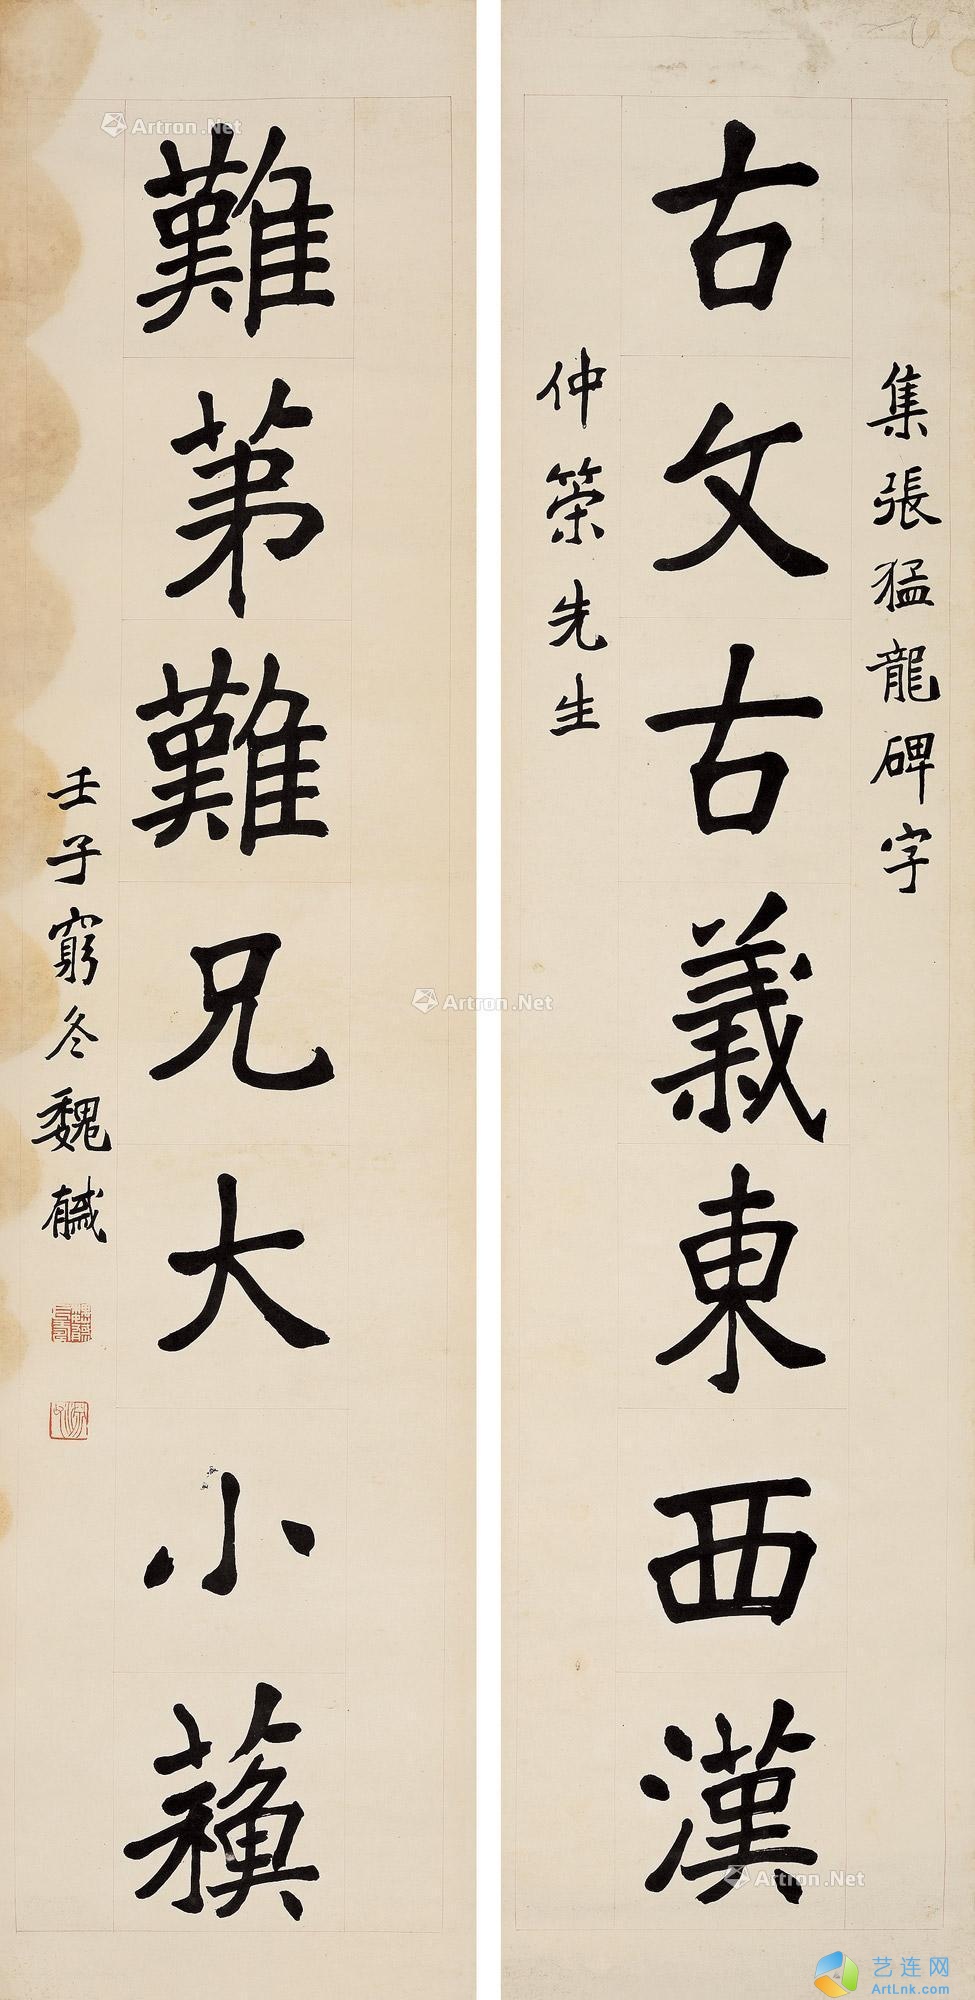 集張猛龍碑字
古文古義東西漢
仲榮先生
難弟難兄大小蘇
壬子窮冬魏戫
Artron.Net
Artron.Net
Artron.Net
艺连网
ArtLnk.com